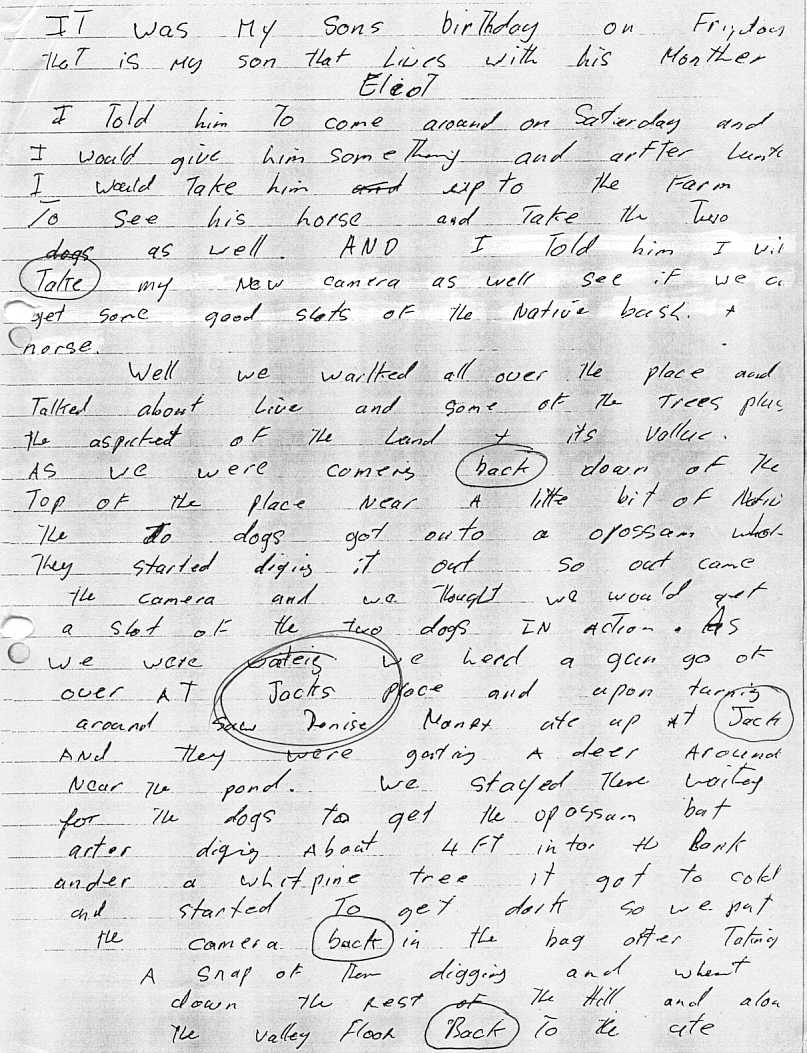 IT was My Sons birthday on
That is my son that Lives with his Monther
Eliot
I Told him To come around on Saterday and
I would give him some Thing and arfter
I would Take him and up to the Farm
To see his horse and Take the Two
dogs as well. AND I Told him I wil
Take my New camera as well see if we
get some good shots of the Native bush. +
horse.
Well we warlked all over the place and
Talked about Live and some of the Trees plus
the aspicket of the Land + its vallue.
As we were comeing back down of the
Top of the place Near A little bit of
The To dogs got onto a opossam
They started diging it out so out came
the camera and we Thought we would get
a shot of the two dogs IN Action. As
we were we herd a gun go of
over AT Jacks place and upon turnig
around saw Denise ute up AT Jack
AND They were A deer Around
Near the pond. We stayed There waiting
for the dogs to get the opossam but
arter diging About 4 FT intor the Bank
under a whit pine tree it got to cold
and started To get dark so we put
the camera back in the bag after Taking
A snap of Them digging and whent
down the Rest of The Hill and
the valley Floor Back To the ute